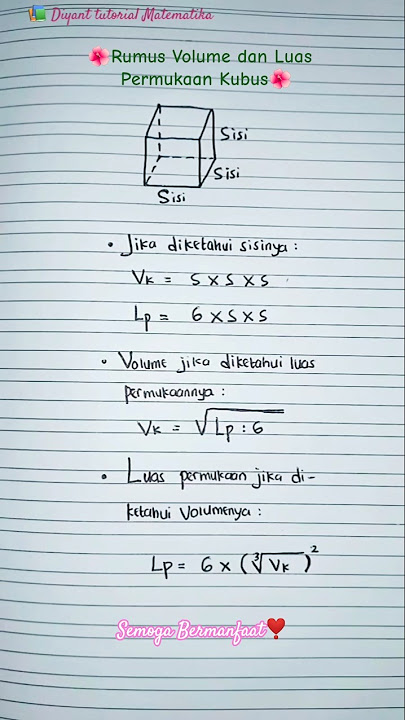 Duyant tutorial Matematika
🌺Rumus Volume dan Luas
Permukaan Kubus🌺
Sisi
Sisi
Sisi
• Jika diketahui sisinya :
Vk = s x s x s
Lp = 6 x s x s
• Volume jika diketahui luas
permukaannya :
Vk = √Lp : 6
• Luas permukaan jika di-
ketahui Volumenya :
Lp = 6 x (∛Vk)²
Semoga Bermanfaat❣️